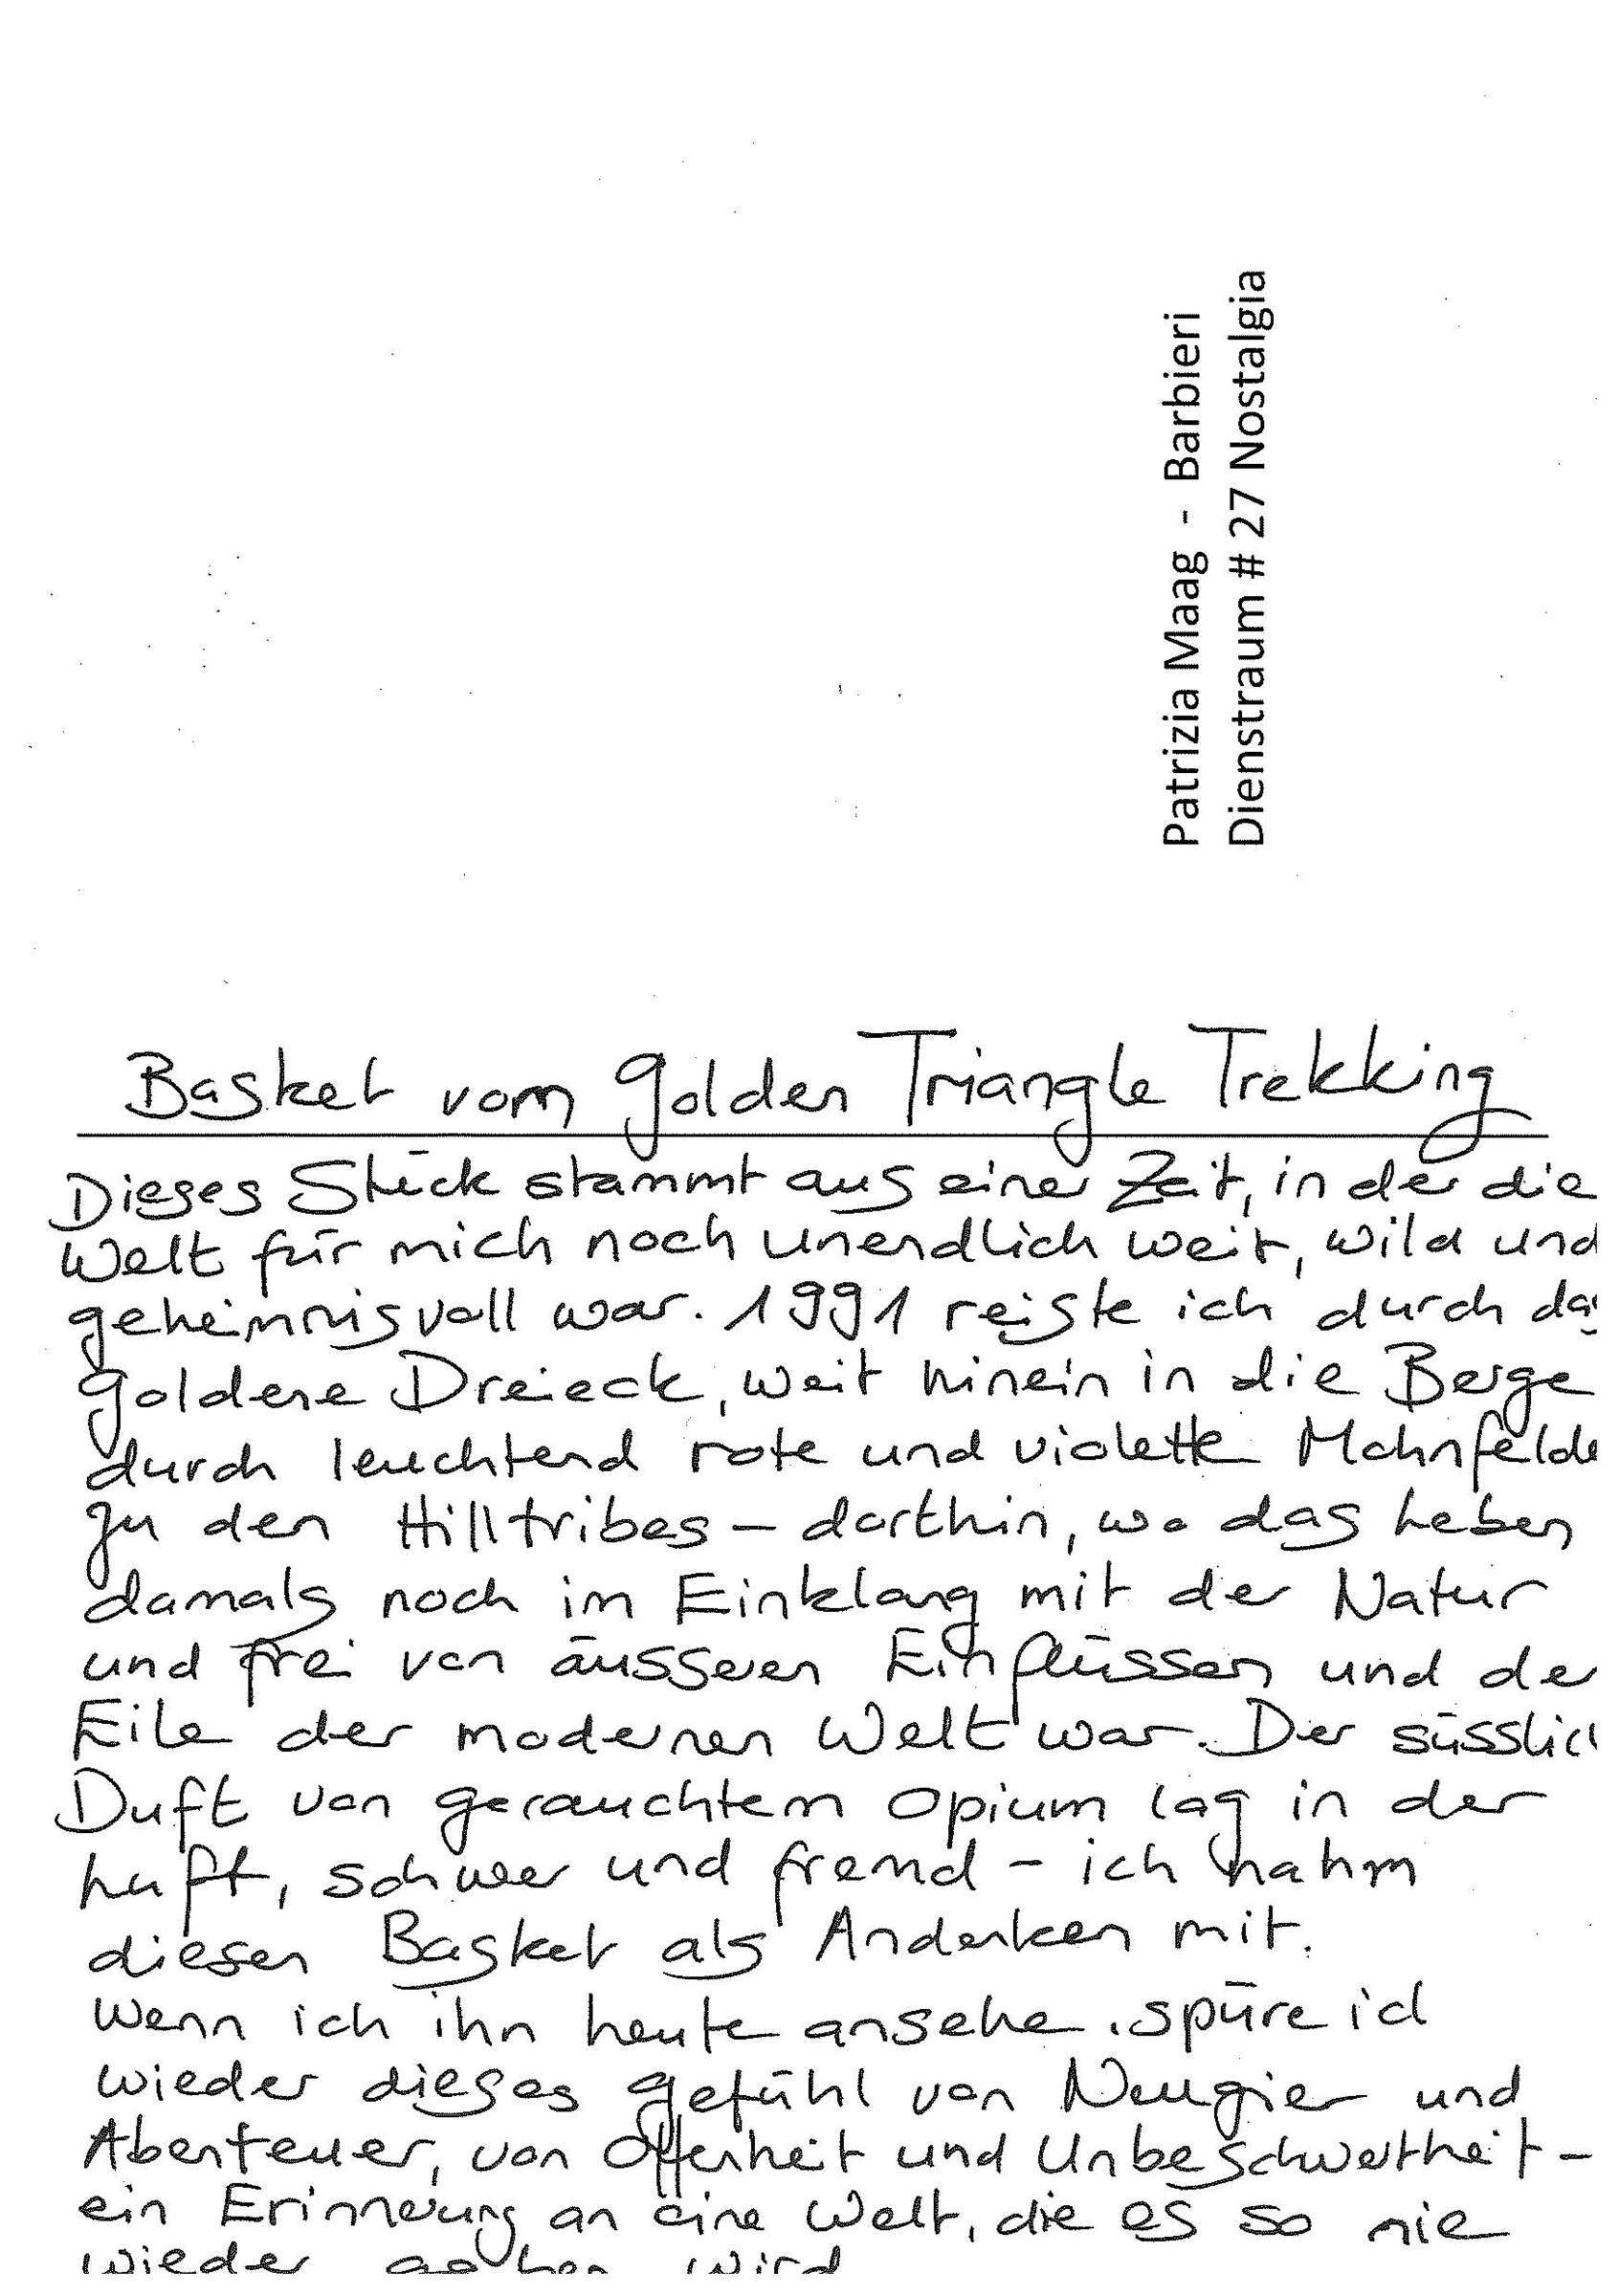 Patrizia Maag - Barbieri
Dienstraum # 27 Nostalgia
Basket vom Golden Triangle Trekking
Dieses Stück stammt aus einer Zeit, in der die
Welt für mich noch unendlich weit, wild und
geheimnisvoll war. 1991 reiste ich durch das
Goldene Dreieck, weit hinein in die Berge
durch leuchtend rote und violette Mohnfelde
zu den Hilltribes – dorthin, wo das Leben
damals noch im Einklang mit der Natur
und frei von äusseren Einflüssen und de
Eile der modernen Welt war. Der süsslich
Duft von gerauchtem Opium lag in der
Luft, schwer und fremd – ich nahm
diesen Basket als Andenken mit.
Wenn ich ihn heute ansehe, spüre ich
wieder dieses Gefühl von Neugier und
Abenteuer, von Offenheit und Unbeschwertheit –
ein Erinnerung an eine Welt, die es so nie
wieder geben wird